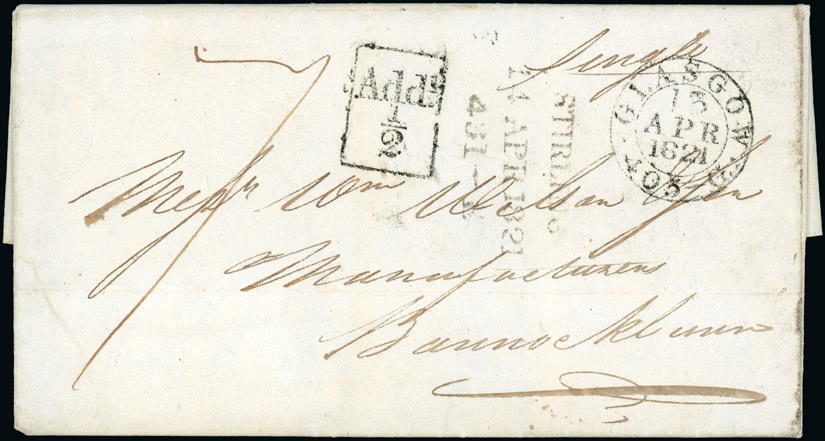 Single
Addl
1/2
STIRLING
14 APR 1821
431
GLASGOW
13
APR
1821
403
7
Messrs Wm Wilson & Son
Manufacturers
Bannockburn